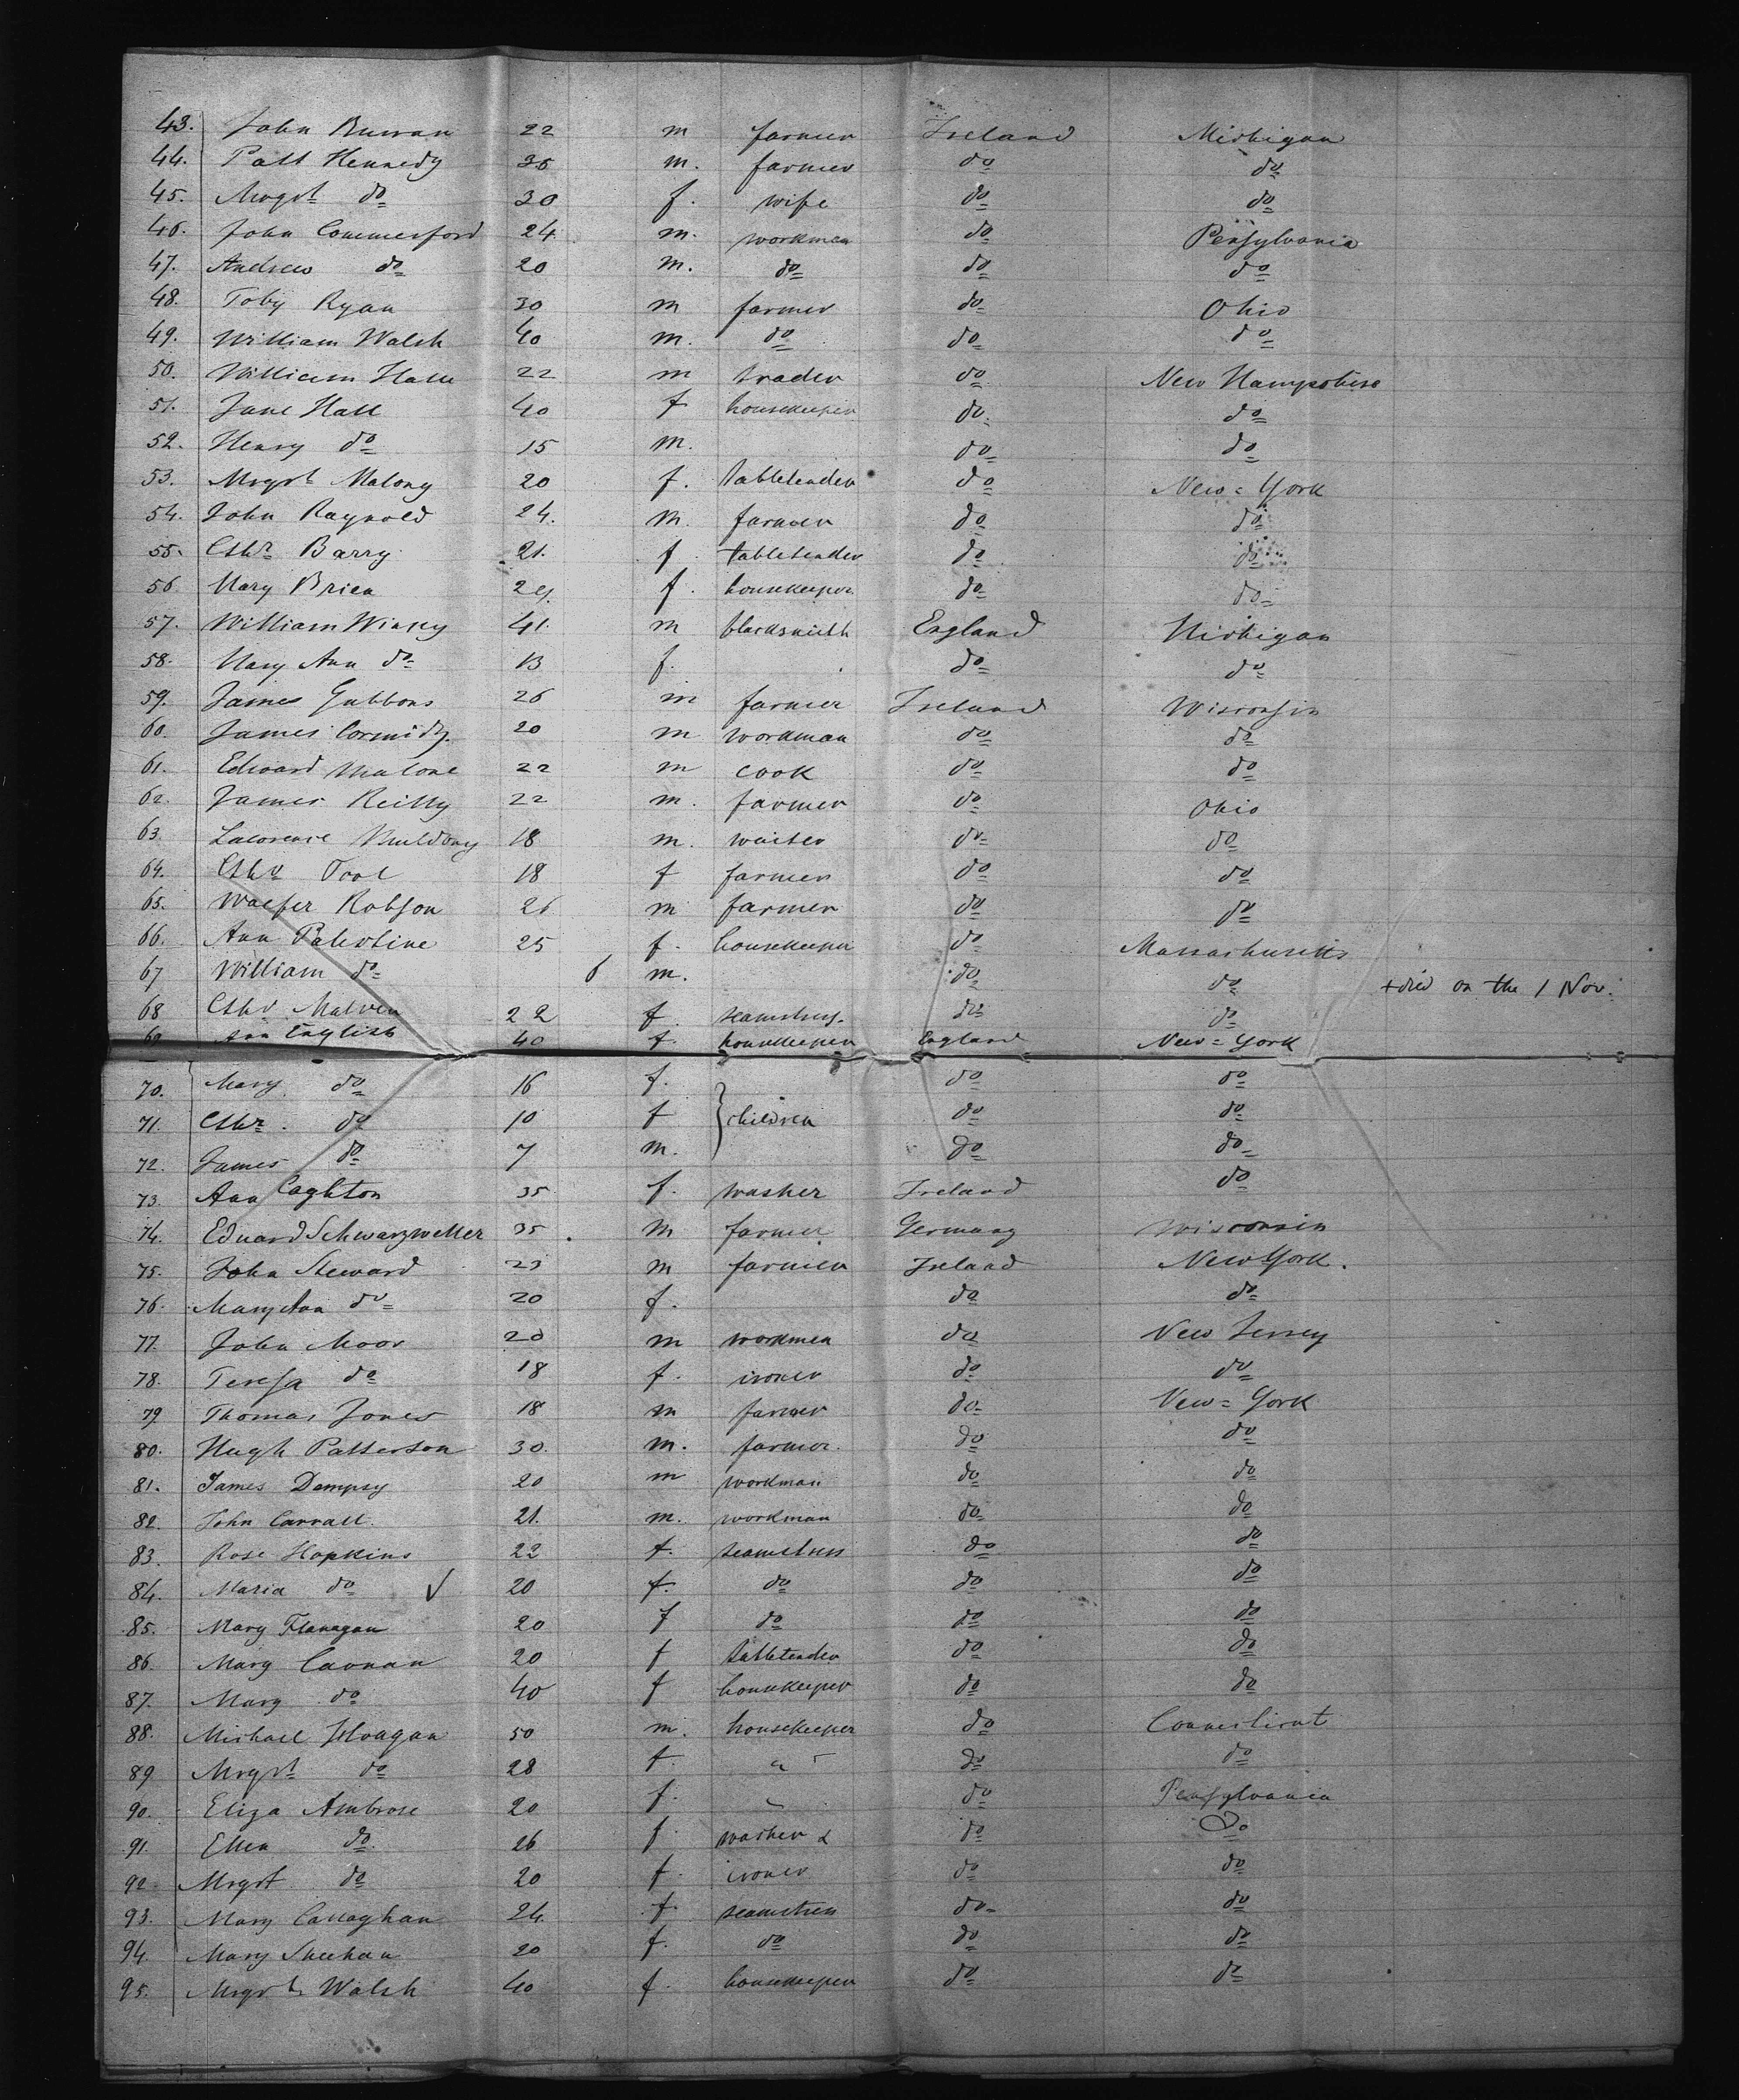 43. John Burran 22 m farmer Ireland Michigan
44. Patt Kennedy 35 m. farmer do do
45. Mrgrt do 30 f. wife do do
46. John Commerford 24 m. workmen do Pensylvania
47. Andrew do 20 m. do do do
48. Toby Ryan 30 m farmer do Ohio
49. William Walsh 40 m. do do do
50. William Hall 22 m trader do New Hampshire
51. Jane Hall 40 f housekeeper do do
52. Henry do 15 m. do do
53. Mrgrt Malony 20 f. tabletender do New=York
54. John Raynold 24. m. farmer do do
55. Cthr Barry 21. f tabletender do do
56 Mary Brien 24. f. housekeeper do do
57. William Winny 41. m blacksmith England Michigan
58. Mary Ann do 13 f. do do
59. James Gubbons 26 m farmer Ireland Wisconsin
60. James Cormidy 20 m workman do do
61. Edward Malone 22 m cook do do
62. James Reilly 22 m. farmer do Ohio
63. Lawrence Muldony 18 m. waiter do do
64. Cthr Tool 18 f farmer do do
65. Robson 26 m farmer do do
66. Ann Palestine 25 f. housekeeper do Massachusetts
67 William do 6 m. do do +died on the 1 Nov.
68 Cthr Malven 22 f. seamstress do do
69 Ann English 40 f. housekeeper England New=York
70. Mary do 16 f. do do
71. Cthr. do 10 f children do do
72. James do 7 m. do do
73. Ann Caghton 35 f. washer Ireland do
74. Eduard Schwarzweller 35. m farmer Germany Wisconsin
75. John Steward 23 m farmer Ireland New York.
76. Mary Ann do 20 f. do do
77. John Moor 20 m workmen do New Jersey
78. Teresa do 18 f. ironer do do
79 Thomas Jones 18 m farmer do New=York
80. Hugh Patterson 30. m. farmer. do do
81. James Dempsy 20 m workman do do
82. John Carrall. 21. m. workman do do
83. Rose Hopkins 22 f. seamstress do do
84. Maria do √ 20 f. do do do
85. Mary Flanagan 20 f do do do
86. Mary Caonan 20 f tabletender do do
87. Mary do 40 f housekeeper do do
88. Michael 50 m. housekeeper do Connecticut
89 Mrgrt do 28 f. " do do
90. Eliza Ambrose 20 f. do Pensylvania
91. Ellen do 26 f. washer & do Do
92 Mrgrt do 20 f. ironer do do
93. Mary Callaghan 24. f. seamstress do do
94. Mary Sheehan 20 f. do do do
95. Mrgrt Walsh 40 f. housekeeper do do